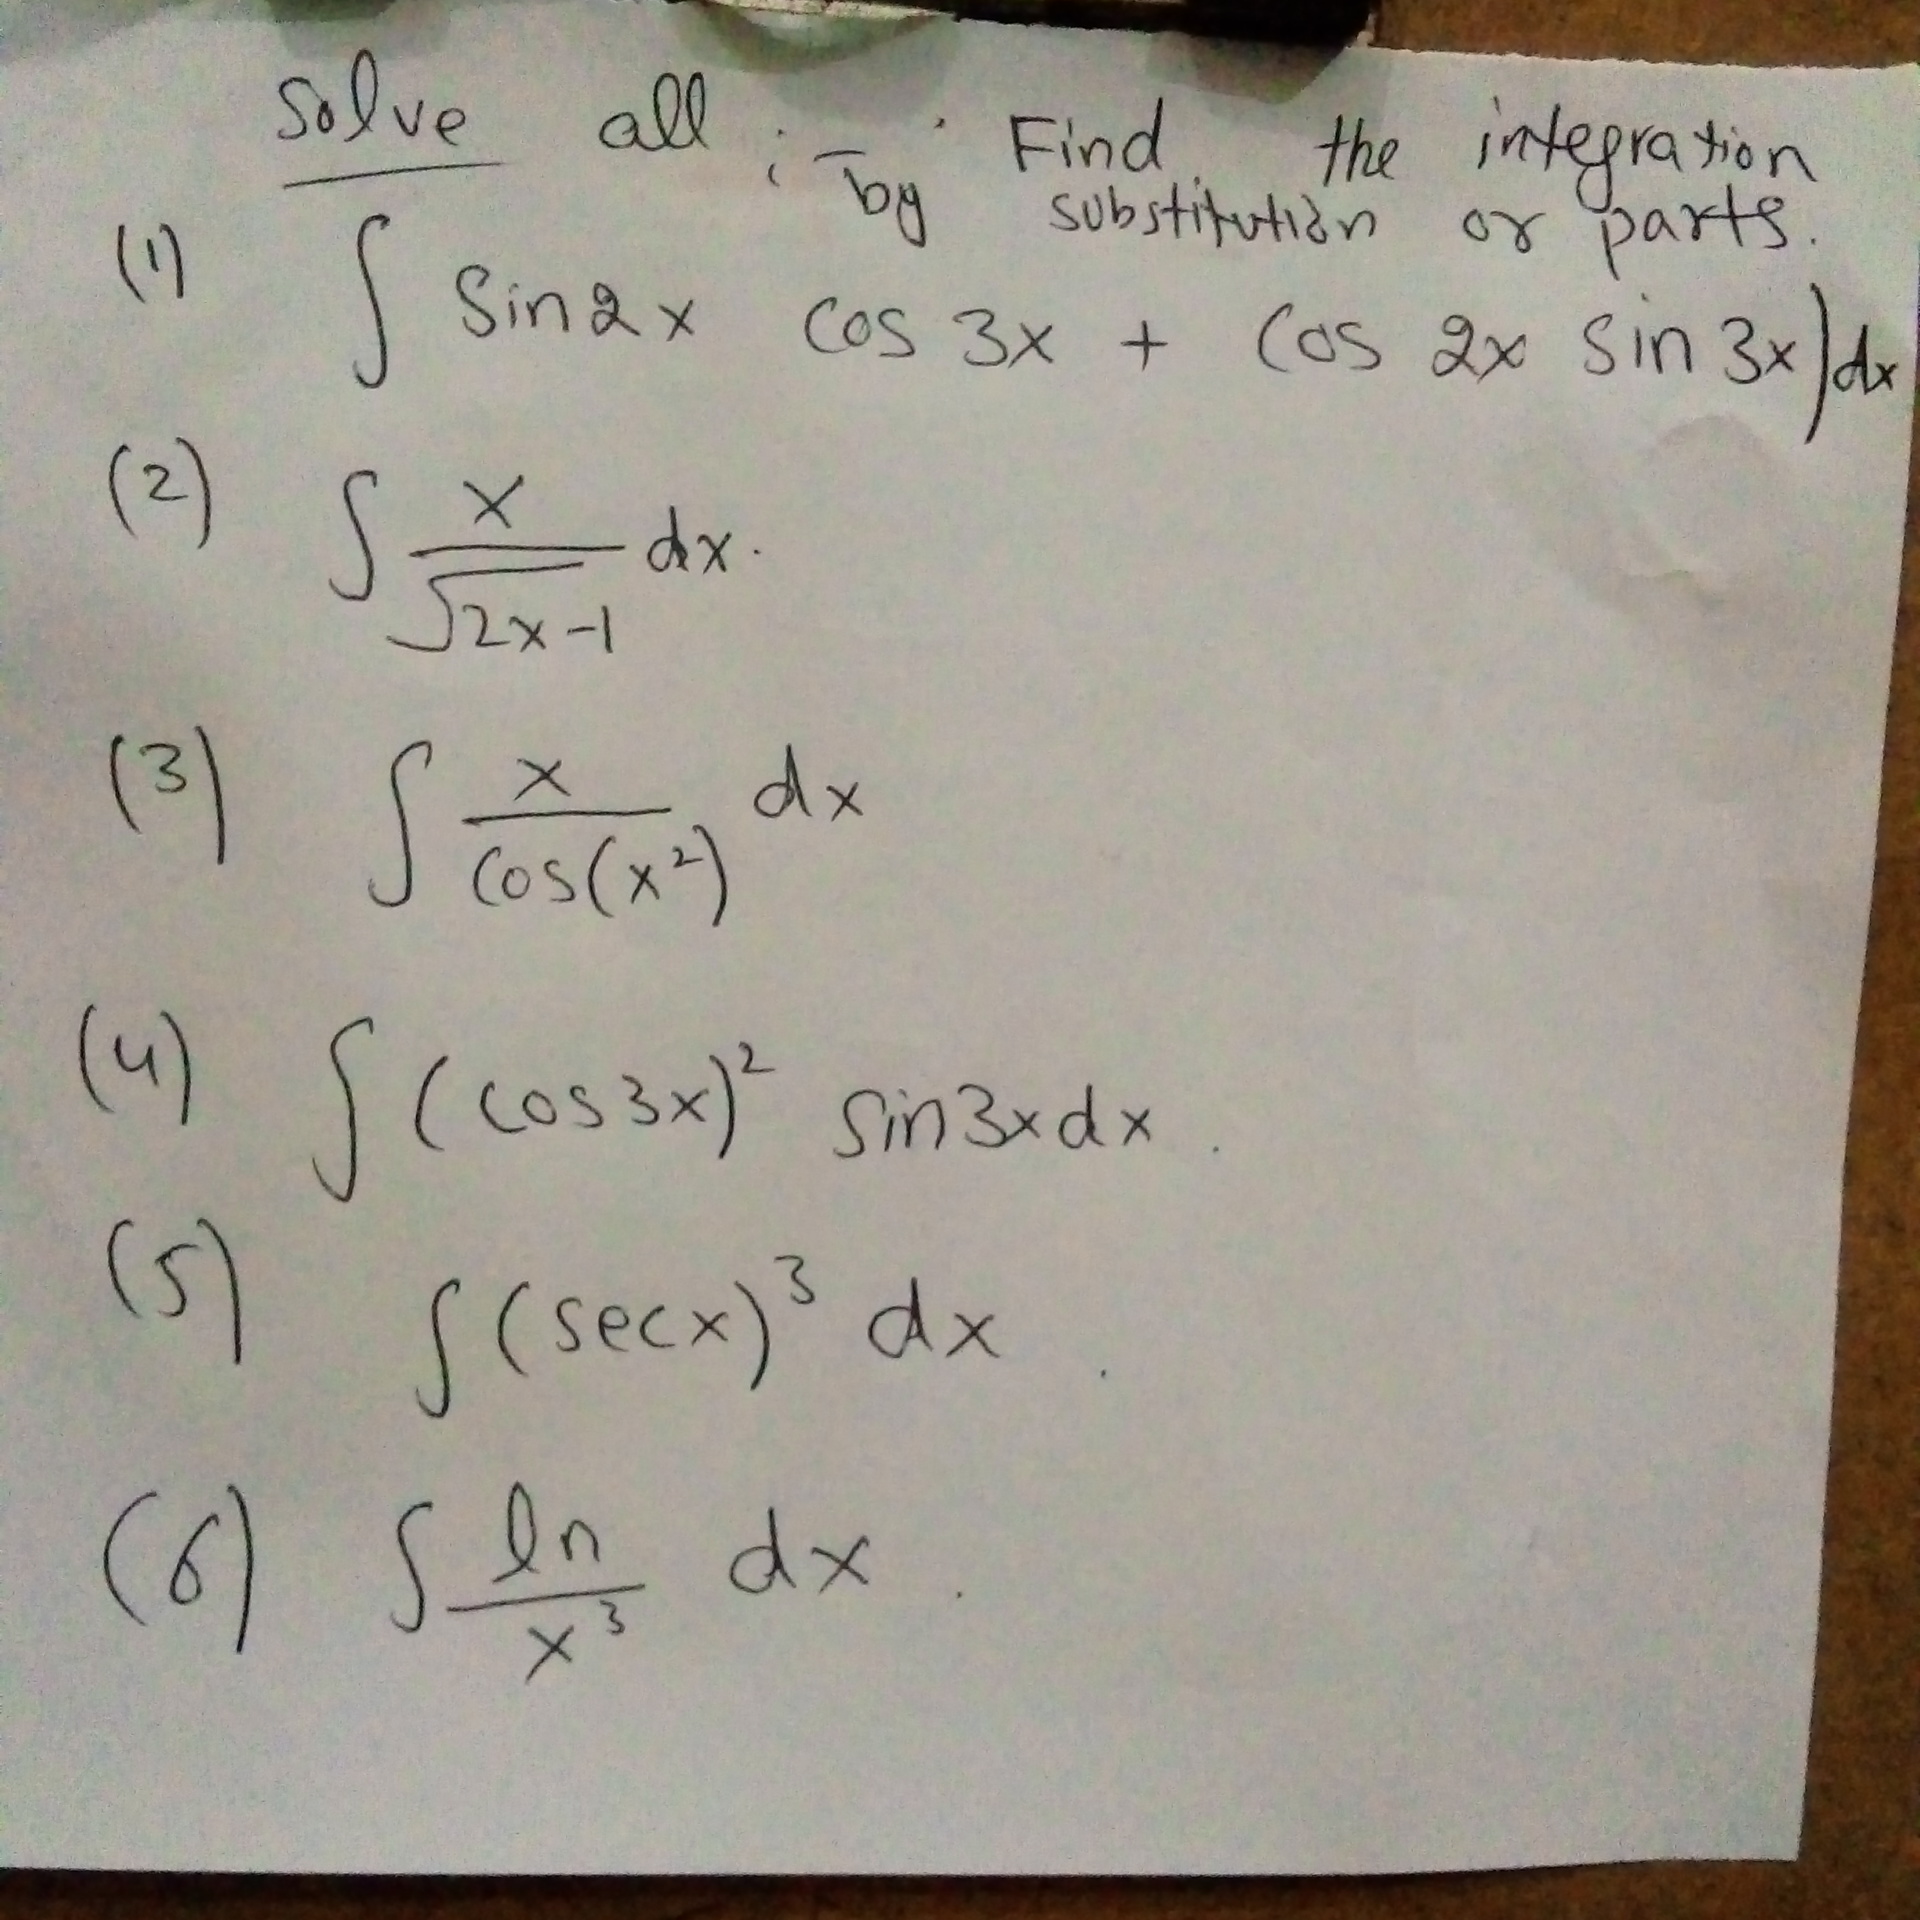 Solve all :- Find the integration
by substitution or parts.
(1) ∫ Sin2x cos 3x + cos 2x sin 3x)dx
(2) ∫ x/√2x-1 dx.
(3) ∫ x/cos(x²) dx
(4) ∫ (cos3x)² sin3xdx.
(5) ∫(secx)³ dx.
(6) ∫ ln/x³ dx.